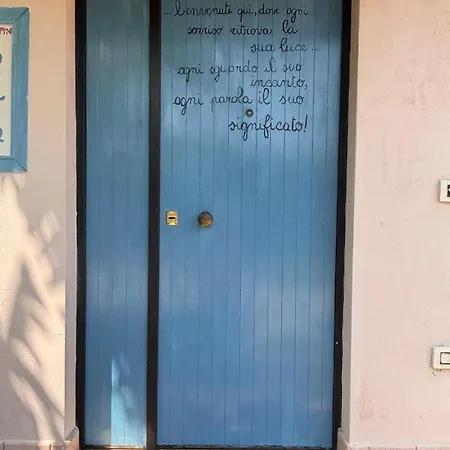 ...Benvenuti qui, dove ogni
sorriso ritrova la
sua luce...
ogni sguardo il suo
incanto,
ogni parola il suo
significato!